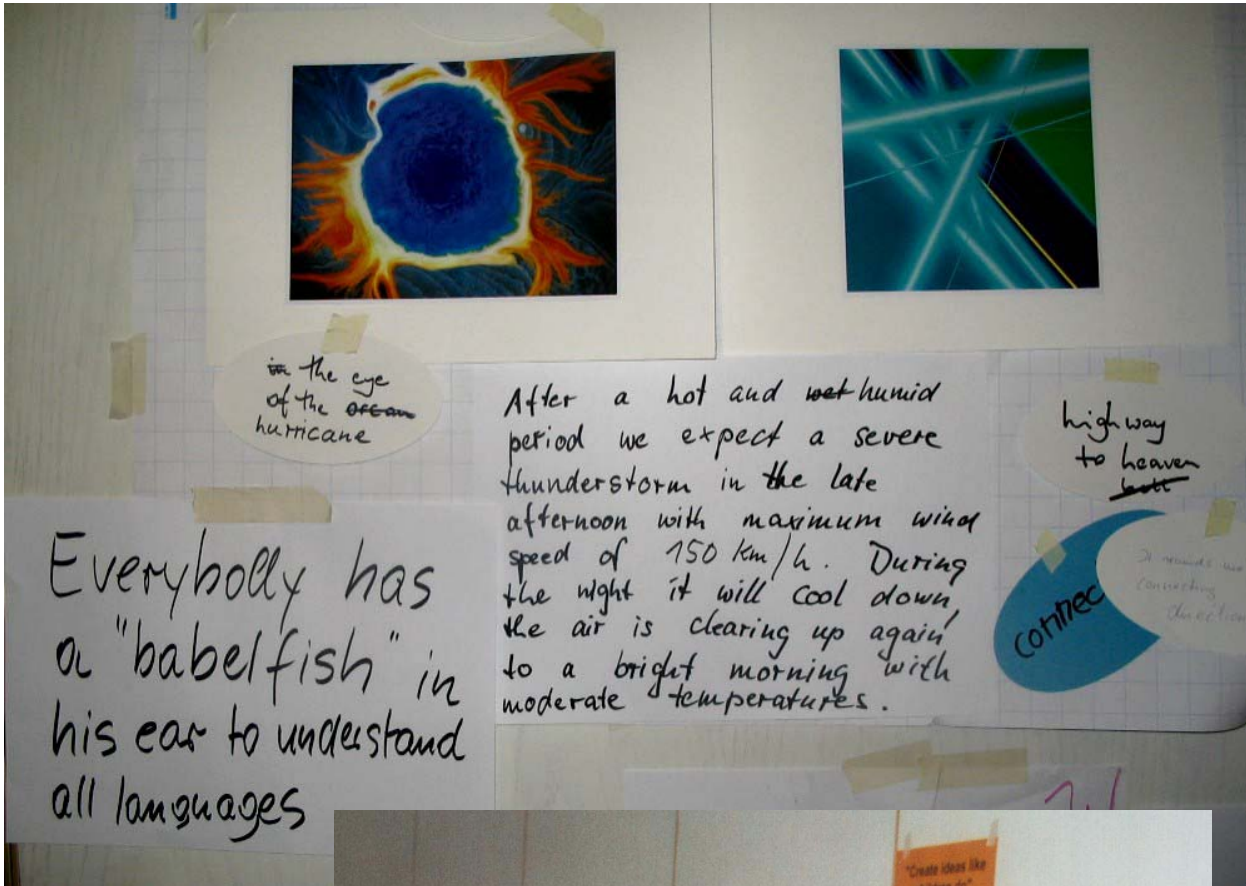 in the eye
of the ocean
hurricane
After a hot and wet humid
period we expect a severe
thunderstorm in the late
afternoon with maximum wind
speed of 150 km/h. During
the night it will cool down,
the air is clearing up again
to a bright morning with
moderate temperatures.
highway
to heaven
hell
connec
connecting
direction
Everybody has
a "babelfish" in
his ear to understand
all languages
"Create ideas like